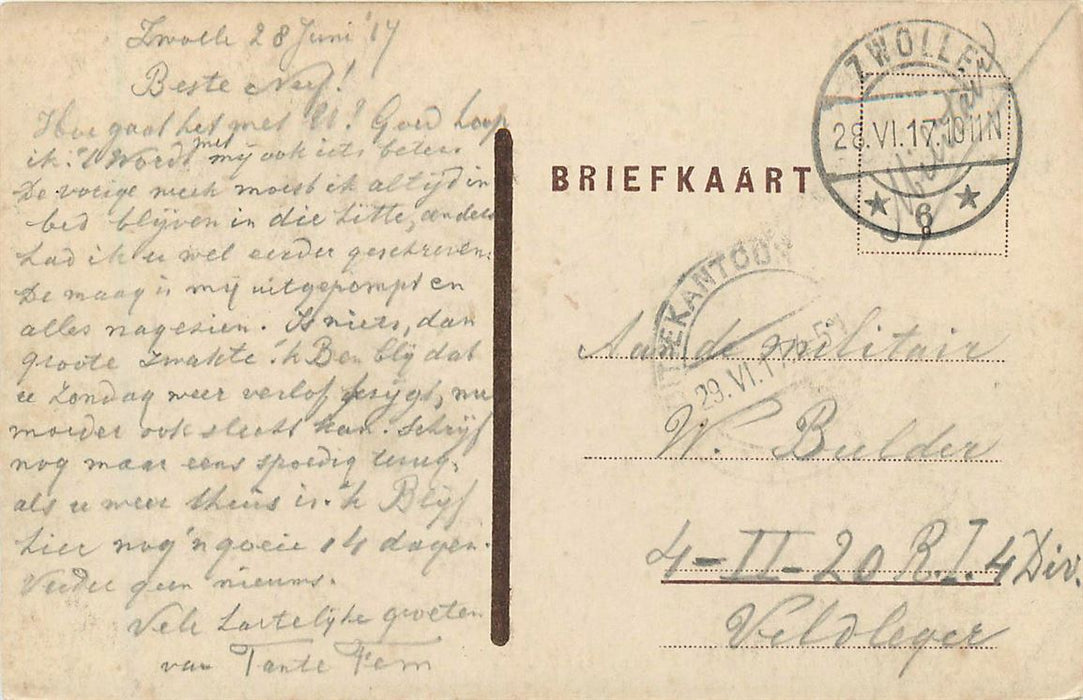 Zwolle 28 Juni '17
Beste Neef!
Hoe gaat het met U? Goed hoop
ik. 't Wordt met mij ook iets beter.
De vorige week moest ik altijd in
bed blijven in die hitte, anders
had ik u wel eerder geschreven.
De maag is mij uitgepompt en
alles nagezien. Is niets, dan
groote zwakte. 'k Ben blij dat
u Zondag weer verlof krijgt, nu
moeder ook slecht kan. Schrijf
nog maar eens spoedig terug,
als u weer thuis is. 'k Blijf
hier nog 'n goeie 14 dagen.
Verder geen nieuws.
Vele hartelijke groeten
van Tante Fem
BRIEFKAART
ZWOLLE
28.VI.17.10-11N
6
Militair
29.VI.17
Aan de militair
W. Bulder
4-II-20 R.I. 4 Div.
Veldleger